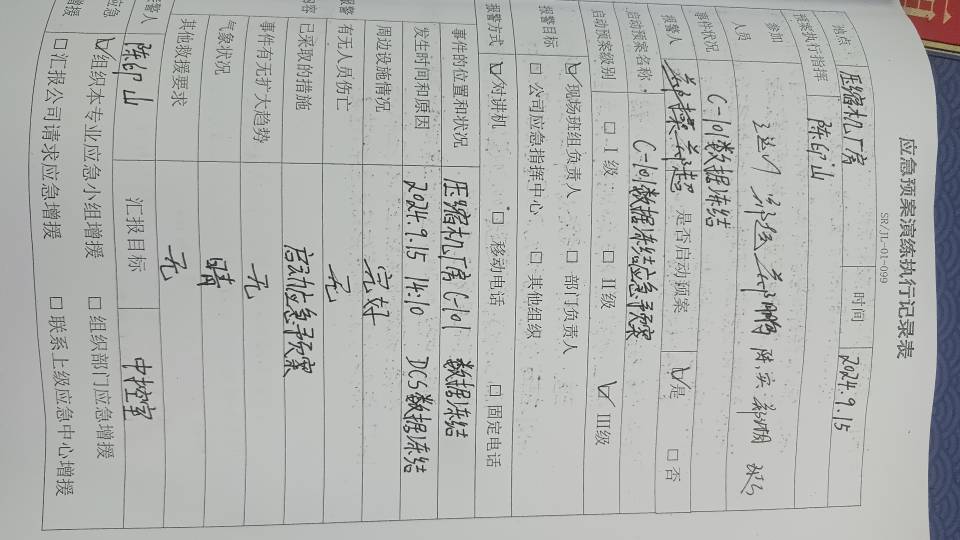 应急预案演练执行记录表
SR/JL-01-099
地点 压缩机厂房 时间 2024.9.15
预案执行指挥 陈印山
参加人员
事件状况 C-101数据冻结
报警人 是否启动预案 ☑是 □否
启动预案名称 C-101数据冻结应急预案
启动预案级别 □Ⅰ级 □Ⅱ级 ☑Ⅲ级
报警目标 ☑现场班组负责人 □部门负责人
□公司应急指挥中心 □其他组织
报警方式 ☑对讲机 □移动电话 □固定电话
事件的位置和状况 压缩机厂房C-101 数据冻结
发生时间和原因 2024.9.15 14:10 DCS数据冻结
周边设施情况 完好
有无人员伤亡 无
已采取的措施 启动应急预案
事件有无扩大趋势 无
气象状况 晴
其他救援要求 无
警人 陈印山 汇报目标 中控室
应急增援 ☑组织本专业应急小组增援 □组织部门应急增援
□汇报公司请求应急增援 □联系上级应急中心增援